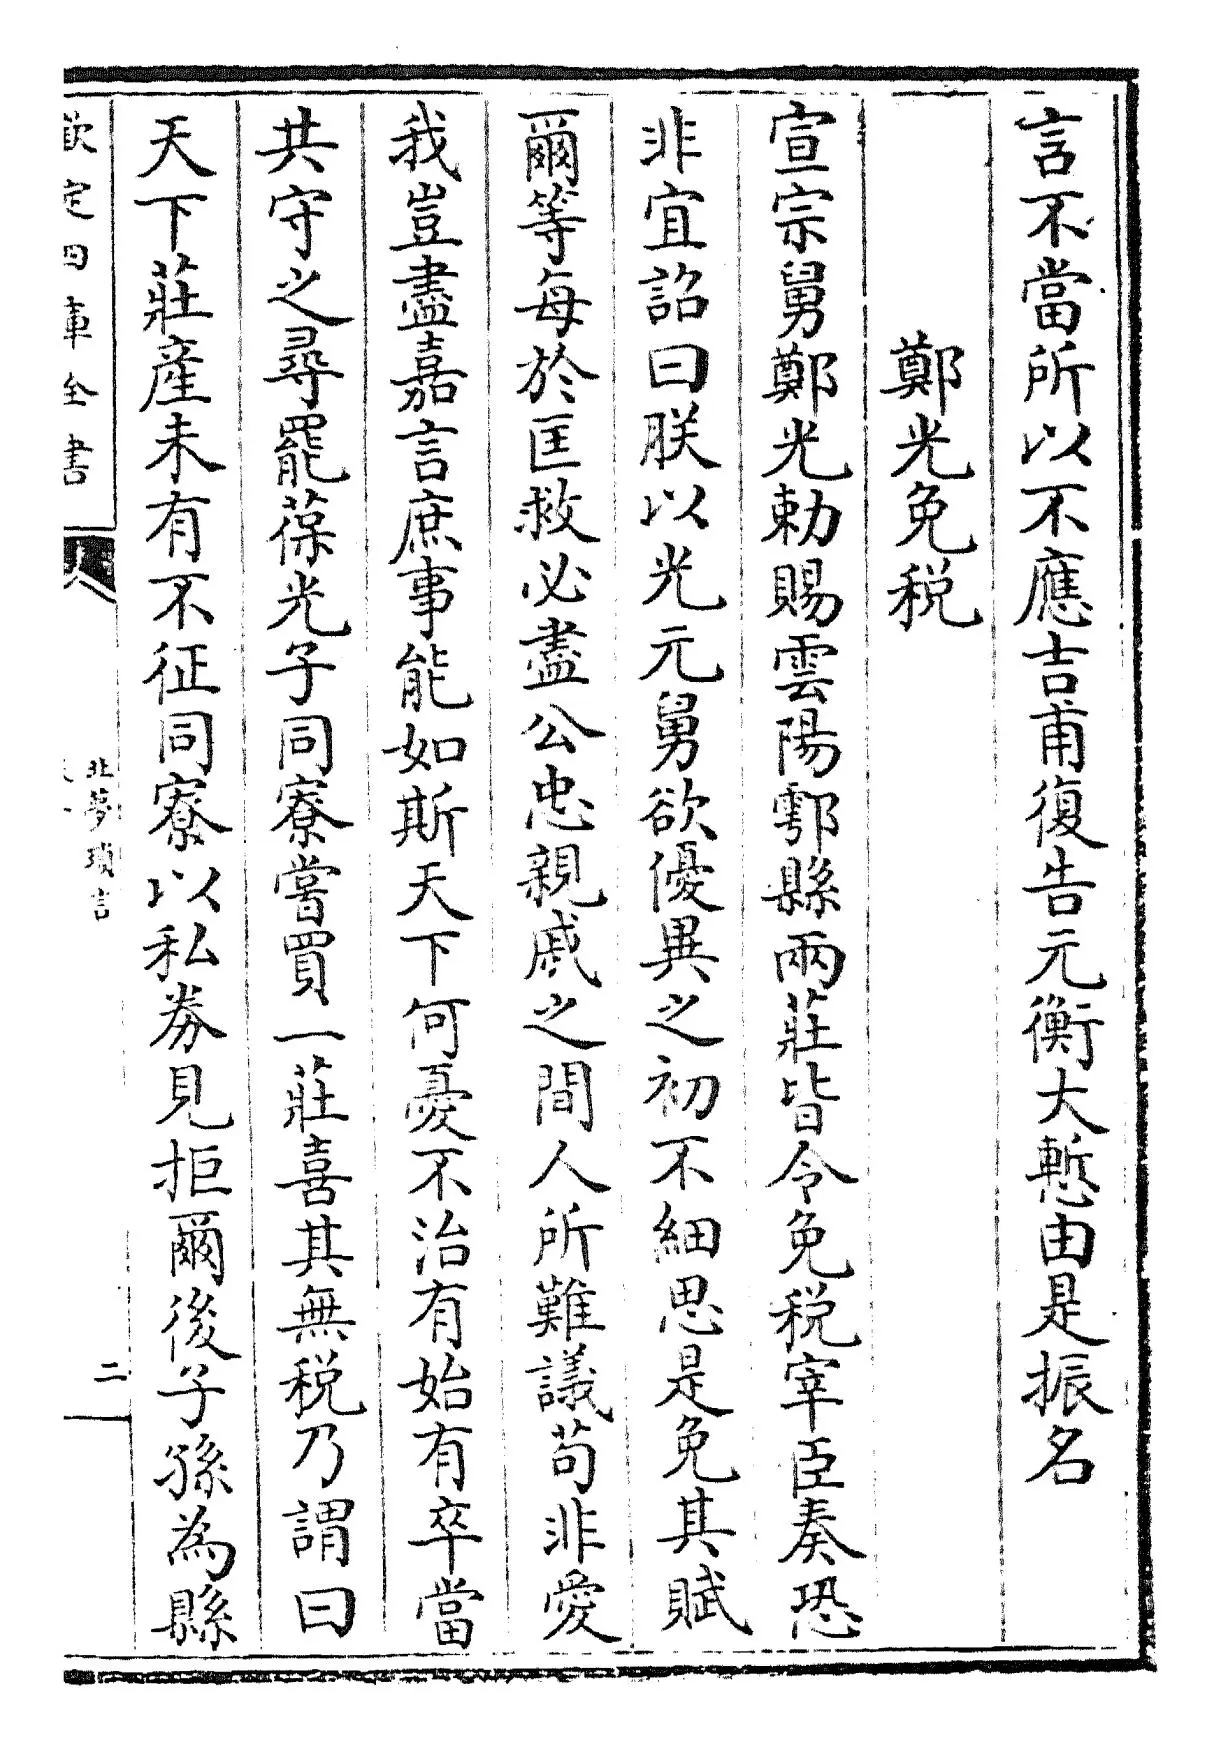 言不當所以不應吉甫復告元衡大慙由是振名
鄭光免税
宣宗舅鄭光勅賜雲陽鄠縣兩莊皆令免税宰臣奏恐
非宜詔曰朕以光元舅欲優異之初不細思是免其賦
爾等每於匡救必盡公忠親戚之間人所難議苟非愛
我豈盡嘉言庶事能如斯天下何憂不治有始有卒當
共守之尋罷葆光子同寮嘗買一莊喜其無税乃謂曰
天下莊產未有不征同寮以私劵見拒爾後子孫為縣
欽定四庫全書
北夢瑣言
二